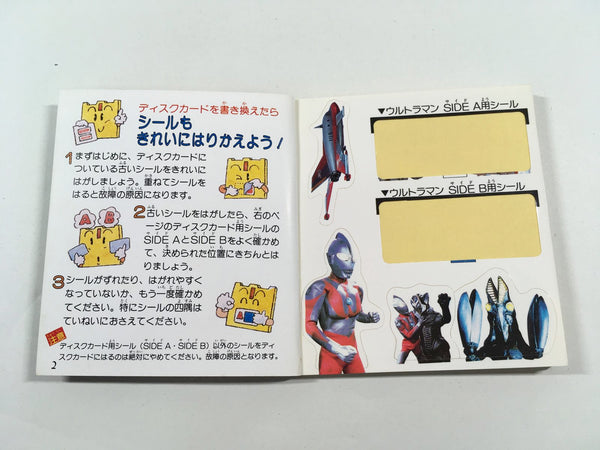 ディスクカードを書き換えたら
シールも
きれいにはりかえよう!
1 まずはじめに、ディスクカードに
ついている古いシールをきれいに
はがしましょう。重ねてシールを
はると故障の原因になります。
A B
2 古いシールをはがしたら、右のペ
ージのディスクカード用シールの
SIDE AとSIDE Bをよく確かめ
て、決められた位置にきちんとは
りましょう。
3 シールがずれたり、はがれやすく
なっていないか、もう一度確かめ
てください。特にシールの四隅は
ていねいにおさえてください。
注意
ディスクカード用シール(SIDE A・SIDE B)以外のシールをディ
スクカードにはるのは絶対にやめてください。故障の原因となります。
2
▼ウルトラマン SIDE A用シール
▼ウルトラマン SIDE B用シール